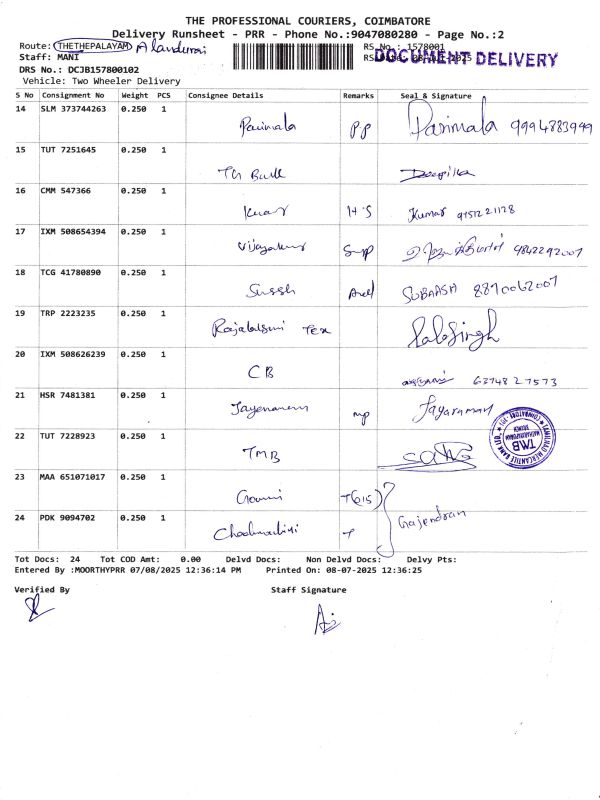 THE PROFESSIONAL COURIERS, COIMBATORE
Delivery Runsheet - PRR - Phone No.:9047080280 - Page No.:2
Route: THETHEPALAYAM Alandurai
RS No.: 1578001
Staff: MANI
DOCUMENT DELIVERY
DRS No.: DCJB157800102
Vehicle: Two Wheeler Delivery
S No Consignment No Weight PCS Consignee Details Remarks Seal & Signature
14 SLM 373744263 0.250 1 Parimala P.P Parimala 9994783949
15 TUT 7251645 0.250 1 Deepika
16 CMM 547366 0.250 1 Kumar H.S Kumar 9151221178
17 IXM 508654394 0.250 1 Vijayakumar 9842292007
18 TCG 41780890 0.250 1 SUBAASH 8870062007
19 TRP 2223235 0.250 1 Tex
20 IXM 508626239 0.250 1 CB 63748 27573
21 HSR 7481381 0.250 1 mp Jayaraman
22 TUT 7228923 0.250 1 TMB
TAMILNAD MERCANTILE BANK LTD. TMB BRANCH
23 MAA 651071017 0.250 1 T(615) Gajendran
24 PDK 9094702 0.250 1 T
Tot Docs: 24 Tot COD Amt: 0.00 Delvd Docs: Non Delvd Docs: Delvy Pts:
Entered By :MOORTHYPRR 07/08/2025 12:36:14 PM Printed On: 08-07-2025 12:36:25
Verified By Staff Signature